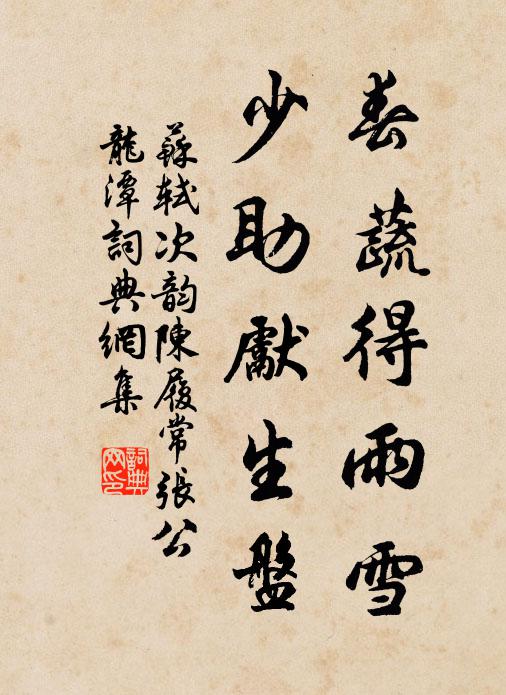 春蔬得雨雪
少助獻生盤
蘇軾次韵陳履常張公
龍潭詞典網集
詞典网印